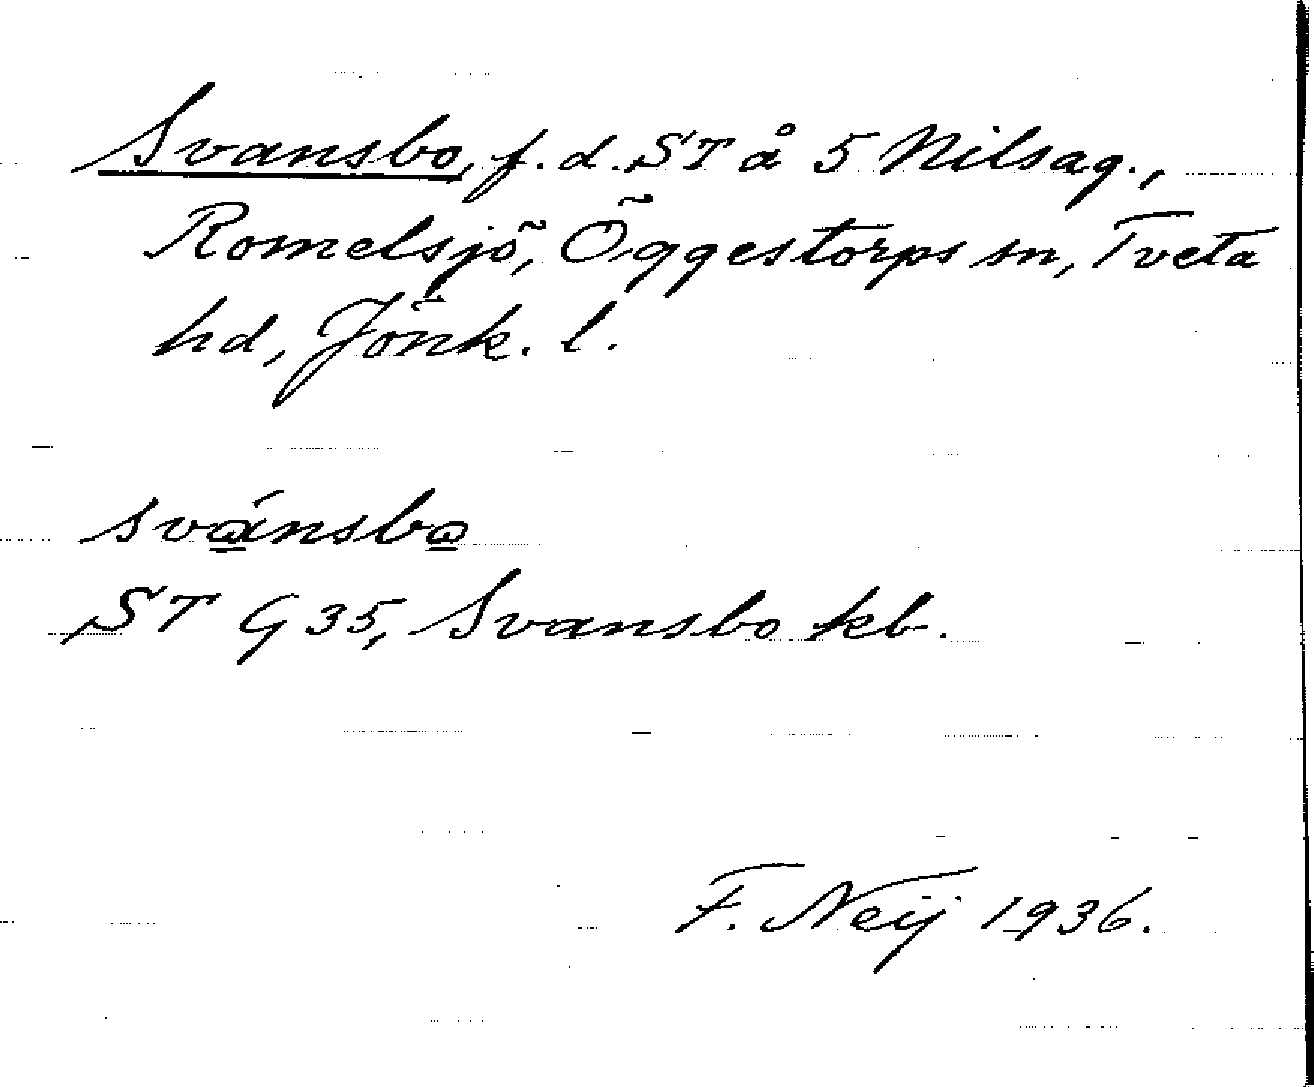 Svansbo, f. d. ST å 5 Nilsag.,
Romelsjö, Öggestorps sn, Tveta
hd, Jönk. l.
svánsbo
ST G 35, Svansbo kb.
F. Neij 1936.